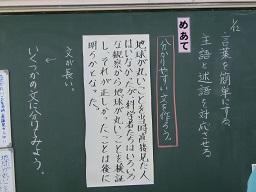 1/12
言葉を簡単にする。
主語と述語を対応させる
めあて
分かりやすい文を作ろう。
地球が丸いことを当時直接見た人
はいないからが、科学者たちはいろいろ
な観察から地球が丸いことを検証
し、それが正しか、たことは後に
明らかとなった。
文が長い。
↓
いくつかの文に分けてみよう。